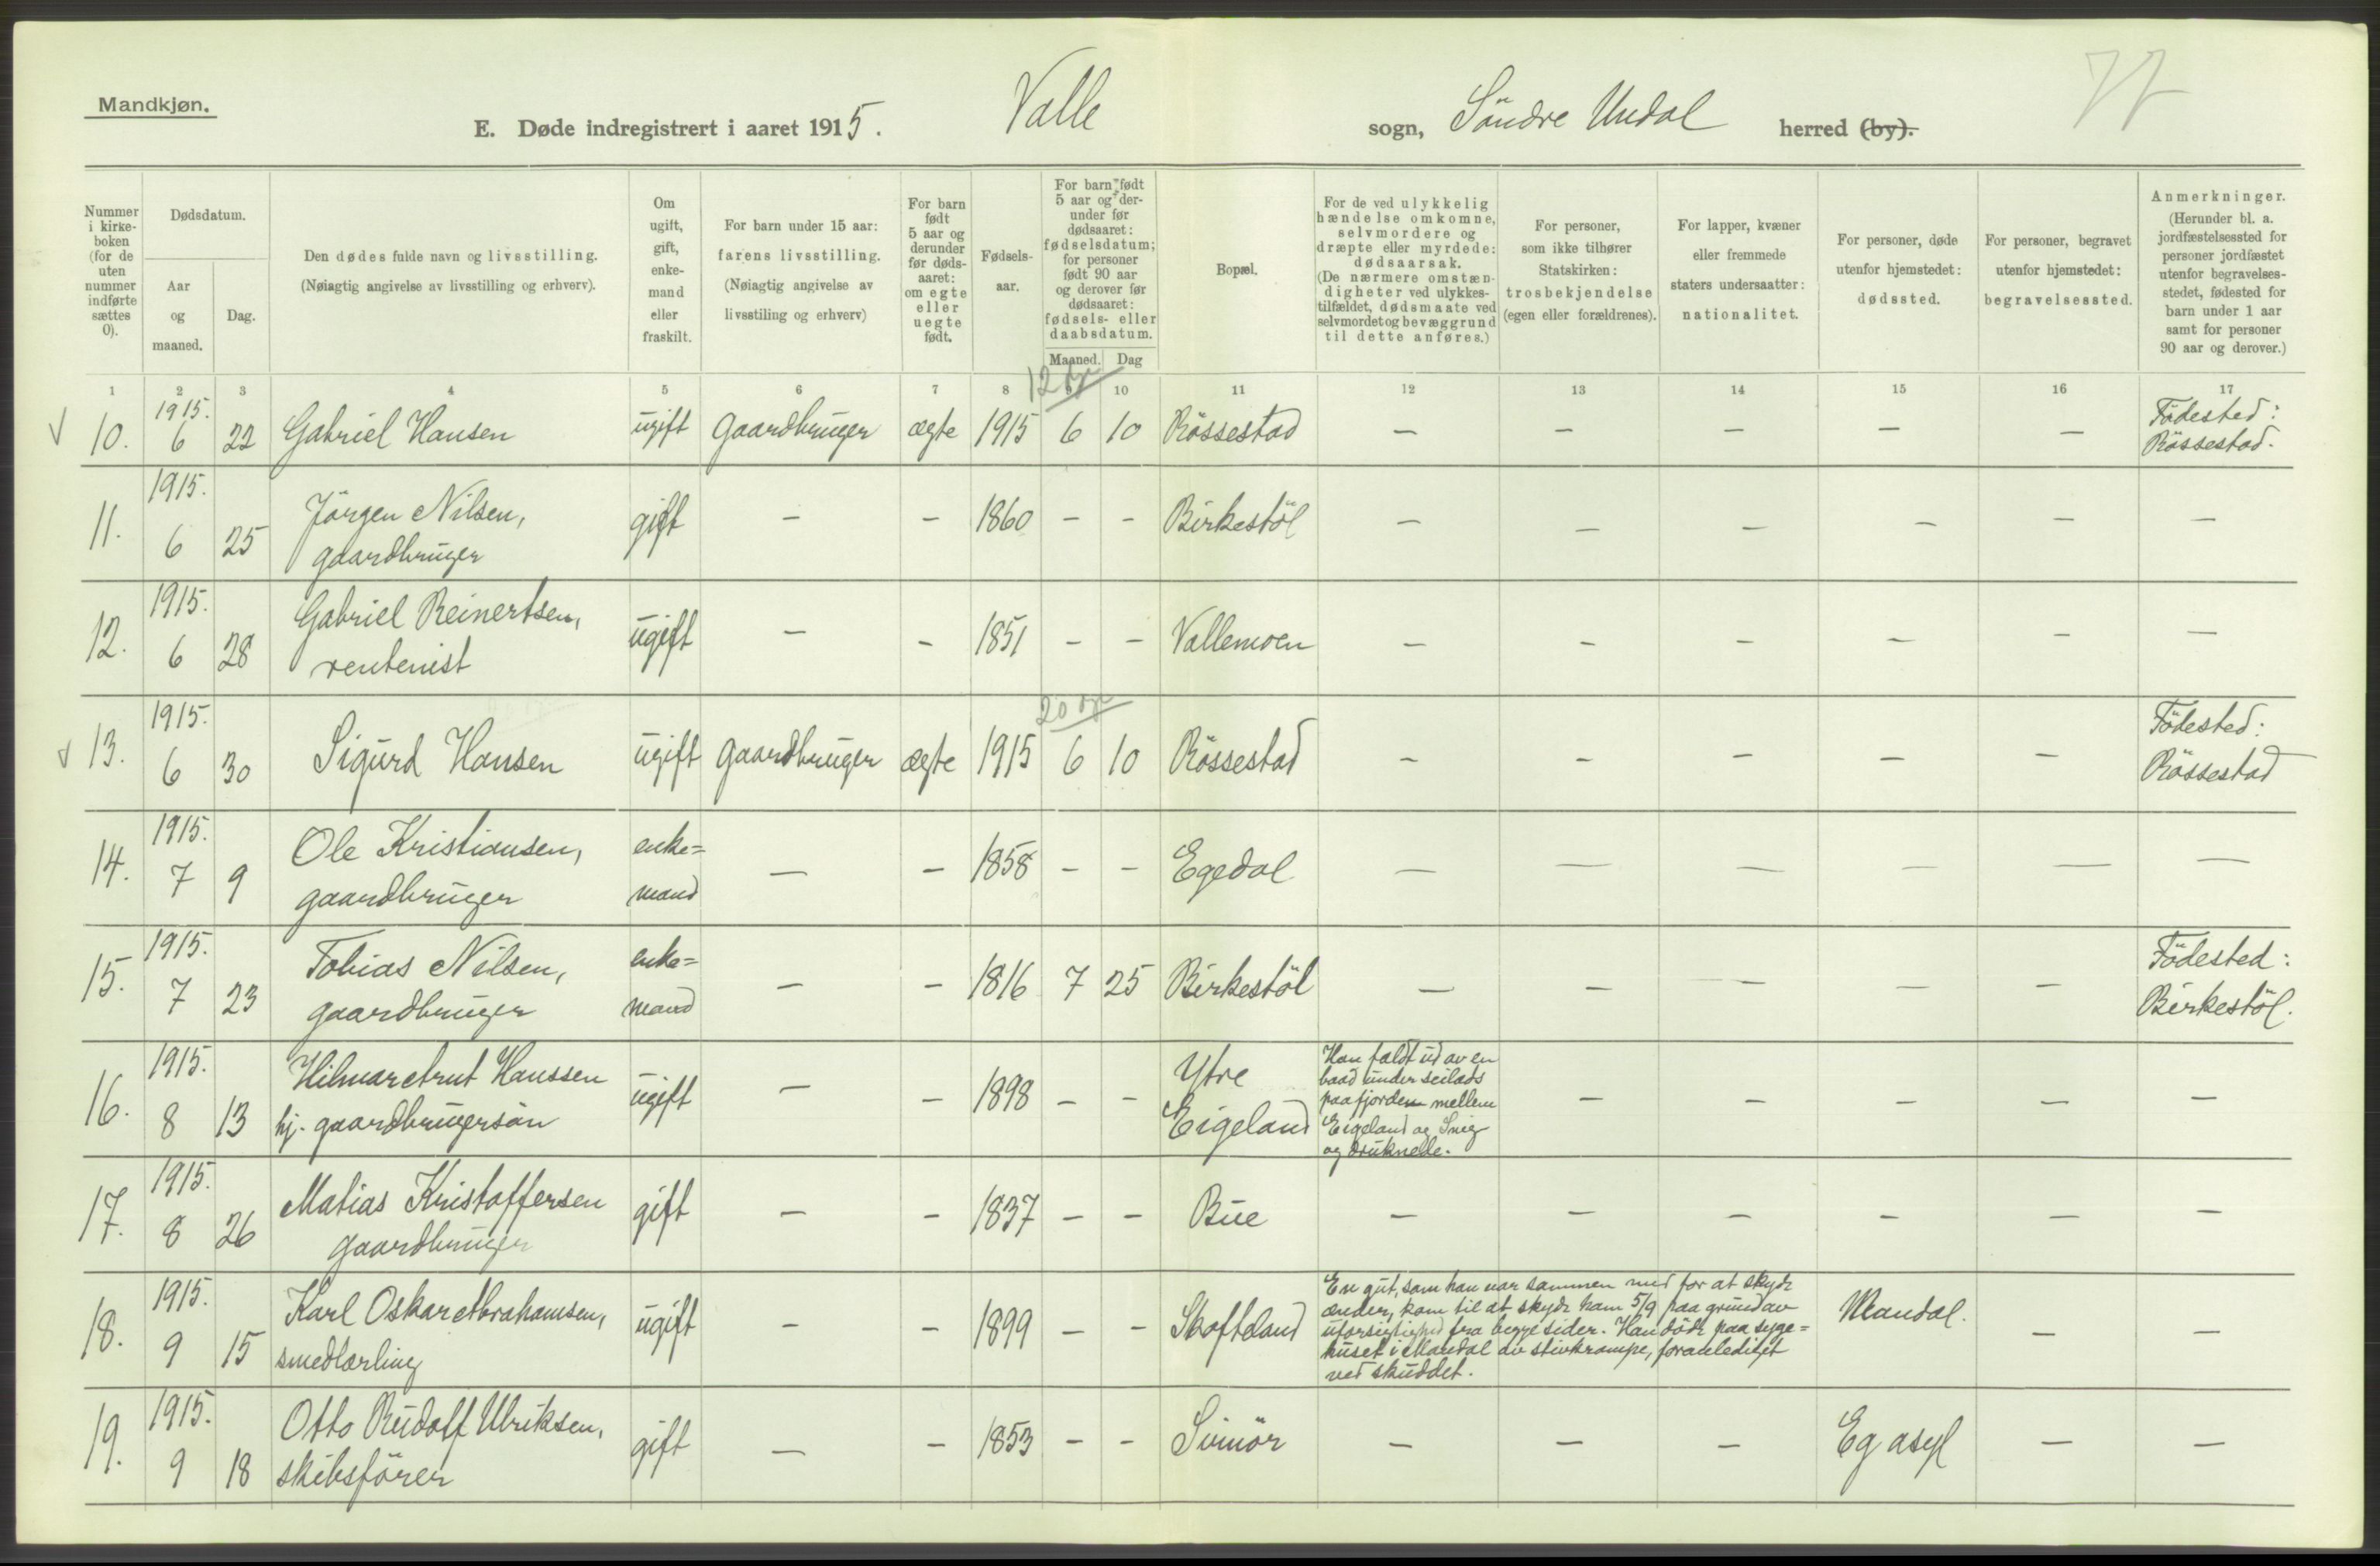 Mandkjøn.
E. Døde indregistrert i aaret 1915.
Valle
sogn,
Söndre Undal
herred (by).
77
Nummer
i kirke-
boken
(for de
uten
nummer
indførte
sættes
0).
Dødsdatum.
Aar
og
maaned.
Dag.
Den dødes fulde navn og livsstilling.
(Nøiagtig angivelse av livsstilling og erhverv).
Om
ugift,
gift,
enke-
mand
eller
fraskilt.
For barn under 15 aar:
farens livsstilling.
(Nøiagtig angivelse av
livsstiling og erhverv)
For barn
født
5 aar og
derunder
før døds-
aaret:
om egte
eller
uegte
født.
Fødsels-
aar.
For barn født
5 aar og der-
under før
dødsaaret:
fødselsdatum;
for personer
født 90 aar
og derover før
dødsaaret:
fødsels- eller
daabsdatum.
Maaned. Dag
Bopæl.
For de ved ulykkelig
hændelse omkomne,
selvmordere og
dræpte eller myrdede:
dødsaarsak.
(De nærmere omstæn-
digheter ved ulykkes-
tilfældet, dødsmaate ved
selvmordet og bevæggrund
til dette anføres.)
For personer,
som ikke tilhører
Statskirken:
trosbekjendelse
(egen eller forældrenes).
For lapper, kvæner
eller fremmede
staters undersaatter:
nationalitet.
For personer, døde
utenfor hjemstedet:
dødssted.
For personer, begravet
utenfor hjemstedet:
begravelsessted.
Anmerkninger.
(Herunder bl. a.
jordfæstelsessted for
personer jordfæstet
utenfor begravelses-
stedet, fødested for
barn under 1 aar
samt for personer
90 aar og derover.)
1 2 3 4 5 6 7 8 9 10 11 12 13 14 15 16 17
12 dgr
10. 1915. 6 22 Gabriel Hansen ugift gaardbruger ægte 1915 6 10 Rössestad — — — — — Födested:
Rössestad.
11. 1915. 6 25 Jörgen Nilsen,
gaardbruger
gift — — 1860 — — Birkestöl — — — — — —
12. 1915. 6 28 Gabriel Reinertsen,
rentenist
ugift — — 1851 — — Vallemoen — — — — — —
20 dgr
13. 1915. 6 30 Sigurd Hansen ugift gaardbruger ægte 1915 6 10 Rössestad — — — — — Födested:
Rössestad
14. 1915. 7 9 Ole Kristiansen,
gaardbruger
enke=
mand
— — 1858 — — Egedal — — — — — —
15. 1915. 7 23 Tobias Nilsen,
gaardbruger
enke=
mand
— — 1816 7 25 Birkestöl — — — — — Födested:
Birkestöl.
16. 1915. 8 13 Hilmar Arnt Hanssen
hj. gaardbrugersön
ugift — — 1898 — — Ytre
Eigeland
Han faldt ud av en
baad under seilads
paa fjorden mellem
Eigeland og Snig
og druknede.
— — — — —
17. 1915. 8 26 Matias Kristoffersen
gaardbruger
gift — — 1837 — — Bue — — — — — —
18. 1915. 9 15 Karl Oskar Abrahamsen,
smedlærling
ugift — — 1899 — — Skofteland
En gut, som han var sammen med for at skyde
ænder, kom til at skyde ham 5/9 paa grund av
uforsigtighed fra begge sider. Han döde paa syge=
huset i Mandal av stivkrampe, foranlediget
ved skuddet.
Mandal. — —
19. 1915. 9 18 Otto Rudolf Ulriksen,
skibsförer
gift — — 1853 — — Svinör — — — Eg asyl — —